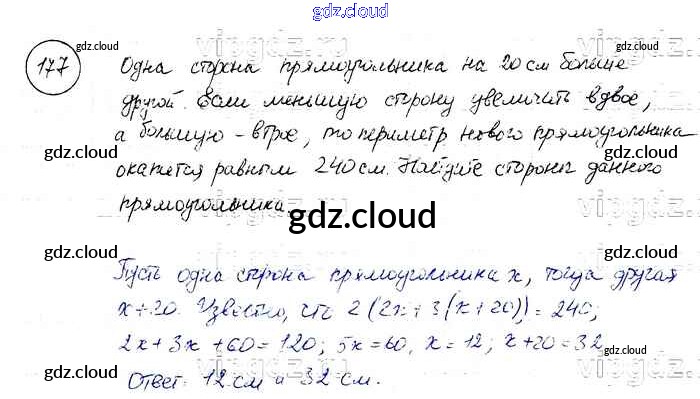 gdz.cloud
177 Одна сторона прямоугольника на 20 см больше
другой. Если меньшую сторону увеличить вдвое,
а большую - втрое, то периметр нового прямоугольника
окажется равным 240 см. Найдите стороны данного
прямоугольника.
gdz.cloud
Пусть одна сторона прямоугольника x, тогда другая
x+20. Известно, что 2(2x+3(x+20))=240;
2x+3x+60=120; 5x=60, x=12; x+20=32
Ответ: 12 см и 32 см.